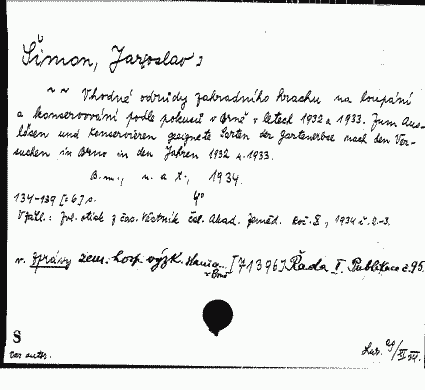 Šimon, Jaroslav
~ ~ Vhodné odrůdy zahradního hrachu na loupání
a konservování podle pokusů v Brně v letech 1932 a 1933. Zum Aus-
lösen und Konservieren geeignete Sorten der Gartenerbse nach den Ver-
suchen in Brno in den Jahren 1932 u. 1933.
B. m., n. a t., 1934.
134-139 [= 6] s. 4°
Zvl. otisk z čas. Věstník čsl. Akad. Zeměd. Roč. X, 1934 č. 2.-3.
v. Zprávy zem. hosp. výzk.
v Brně [71396] Řada I. Publikace č. 95.
S